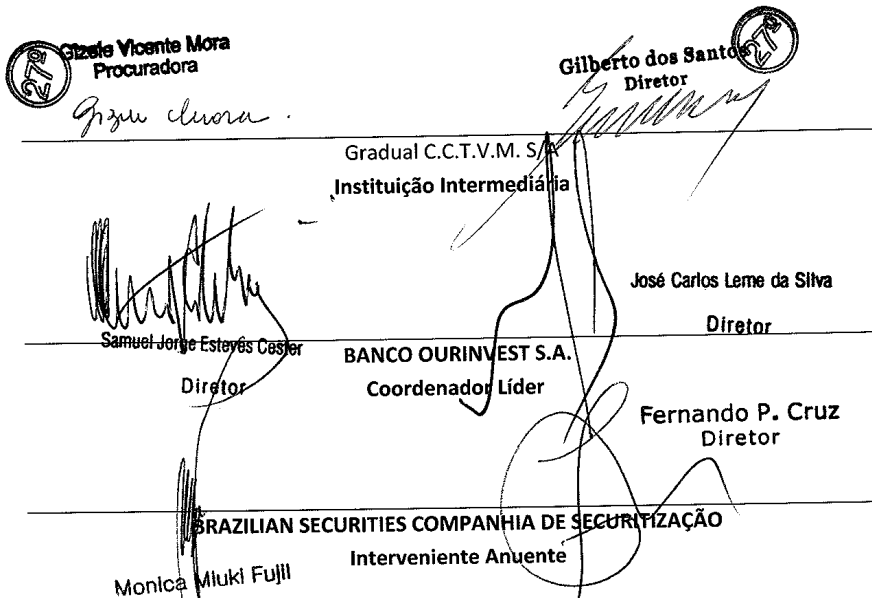 27º
Gizele Vicente Mora
Procuradora
27º
Gilberto dos Santos
Diretor
Gizele Mora
Gradual C.C.T.V.M. S/A
Instituição Intermediária
José Carlos Leme da Silva
Diretor
Samuel Jorge Esteves Cester
Diretor
BANCO OURINVEST S.A.
Coordenador Líder
Fernando P. Cruz
Diretor
BRAZILIAN SECURITIES COMPANHIA DE SECURITIZAÇÃO
Interveniente Anuente
Monica Miuki Fujii